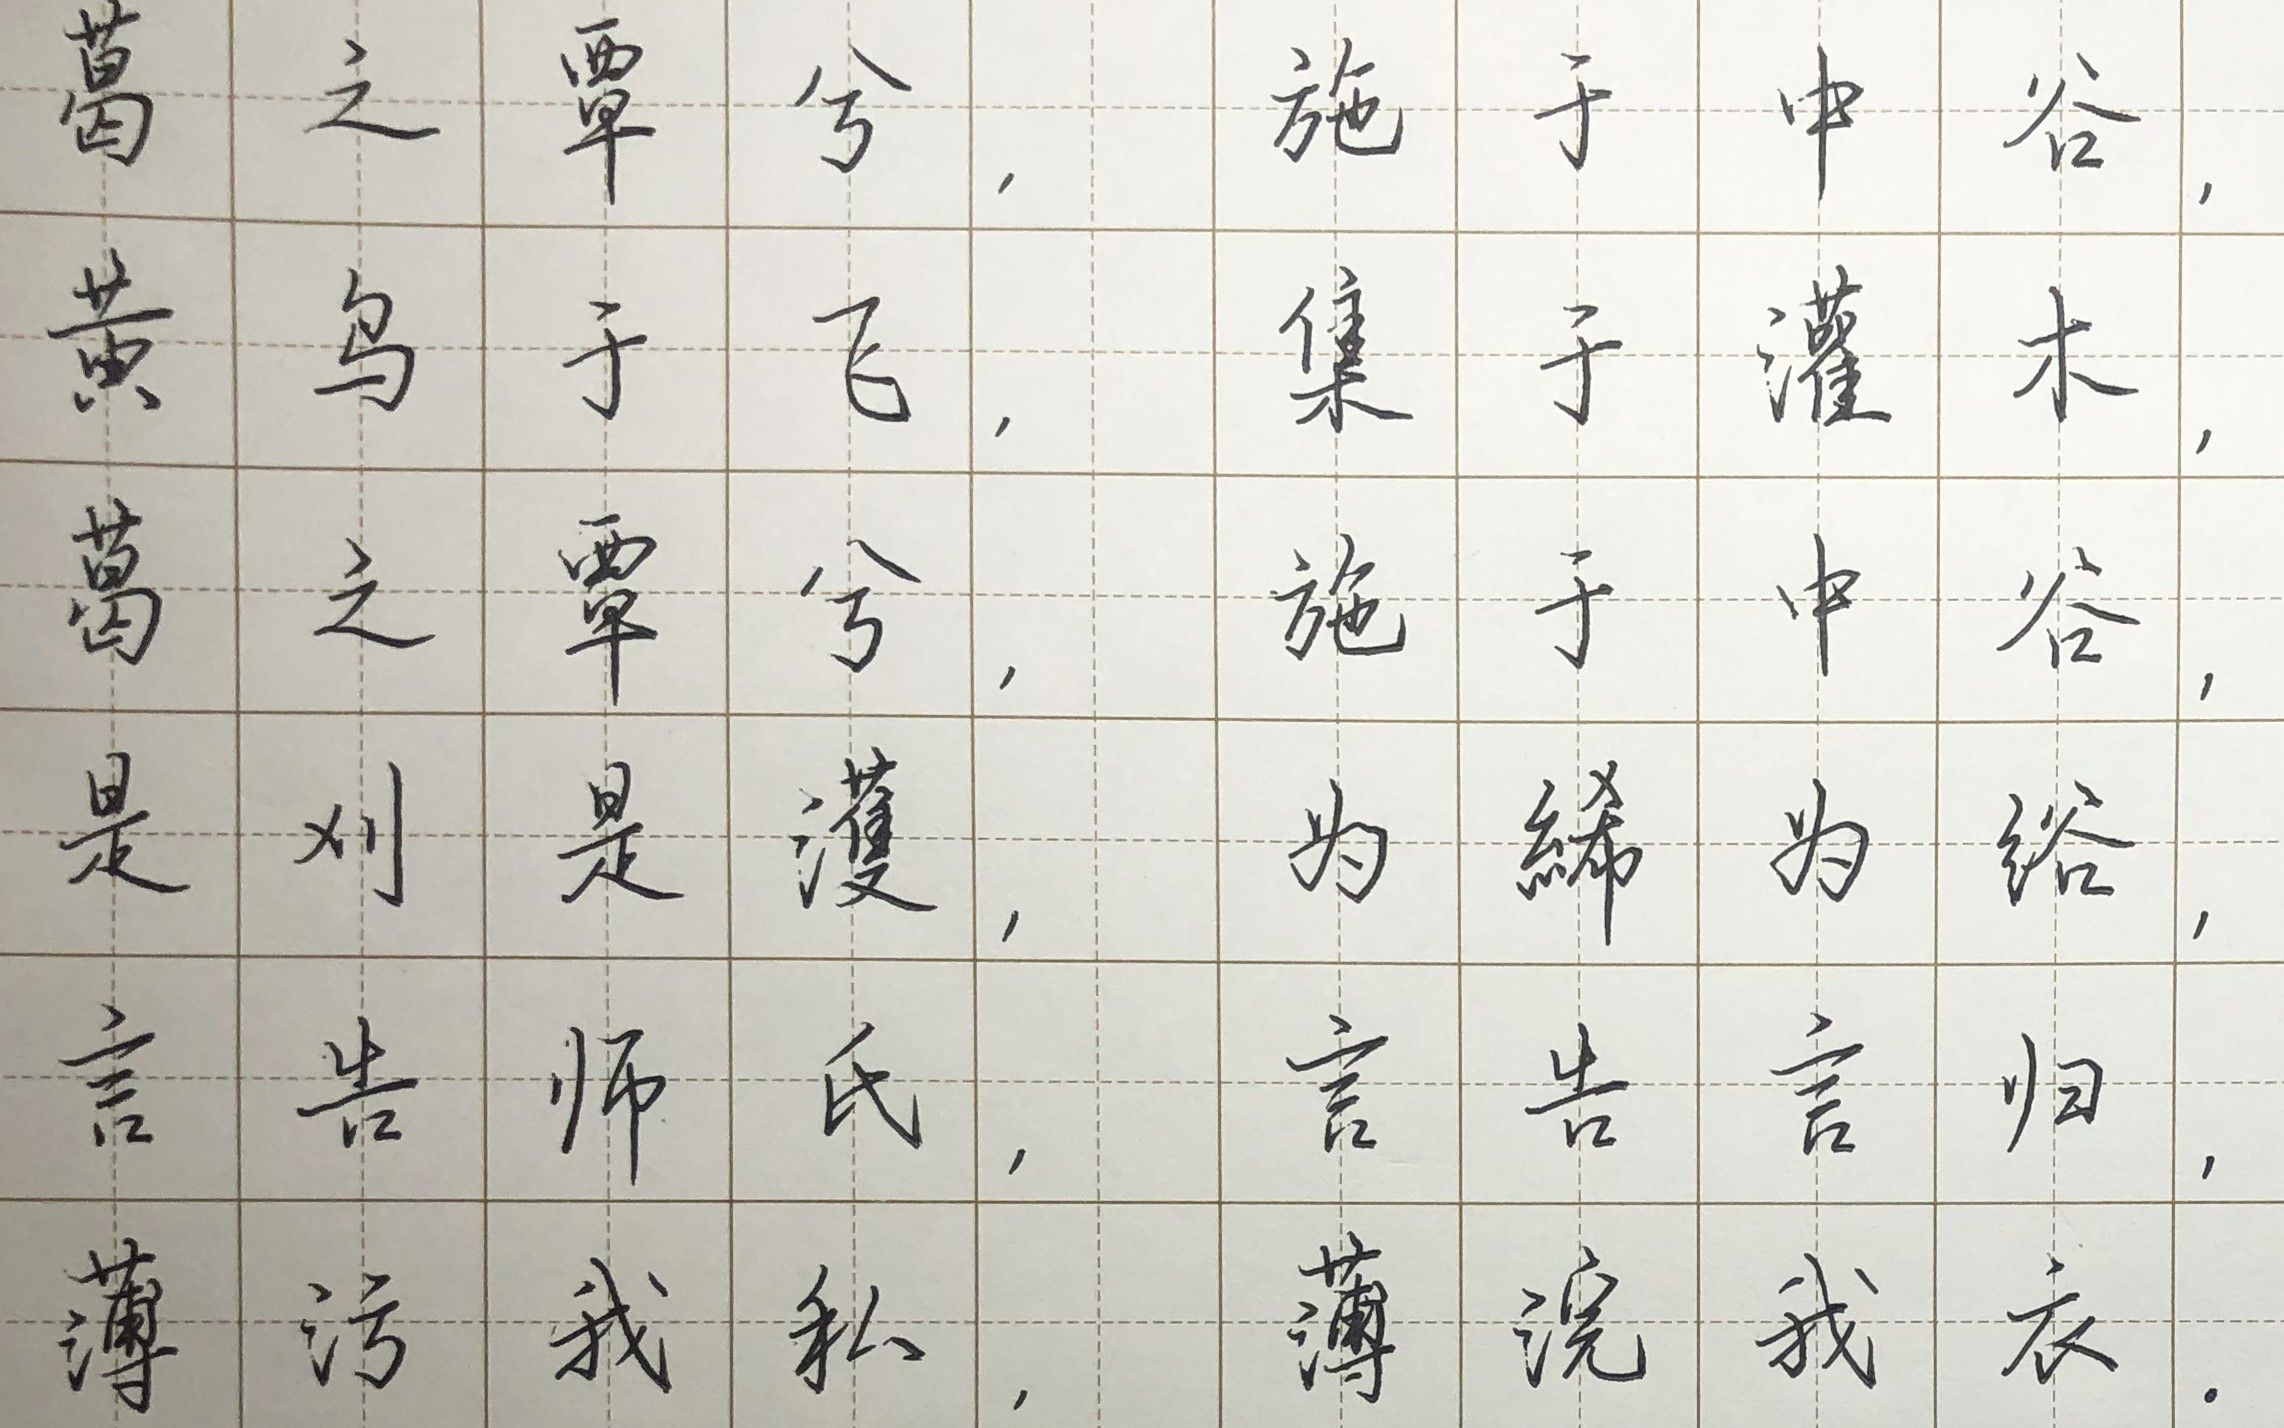 葛之覃兮，施于中谷，
黄鸟于飞，集于灌木，
葛之覃兮，施于中谷，
是刈是濩，为絺为绤，
言告师氏，言告言归，
薄污我私，薄浣我衣.